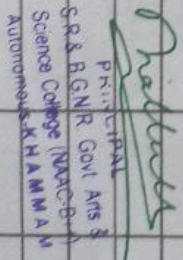 PRINCIPAL
S.R & B.G.N.R Govt Arts &
Science College (NAAC-B++)
Autonomous-KHAMMAM